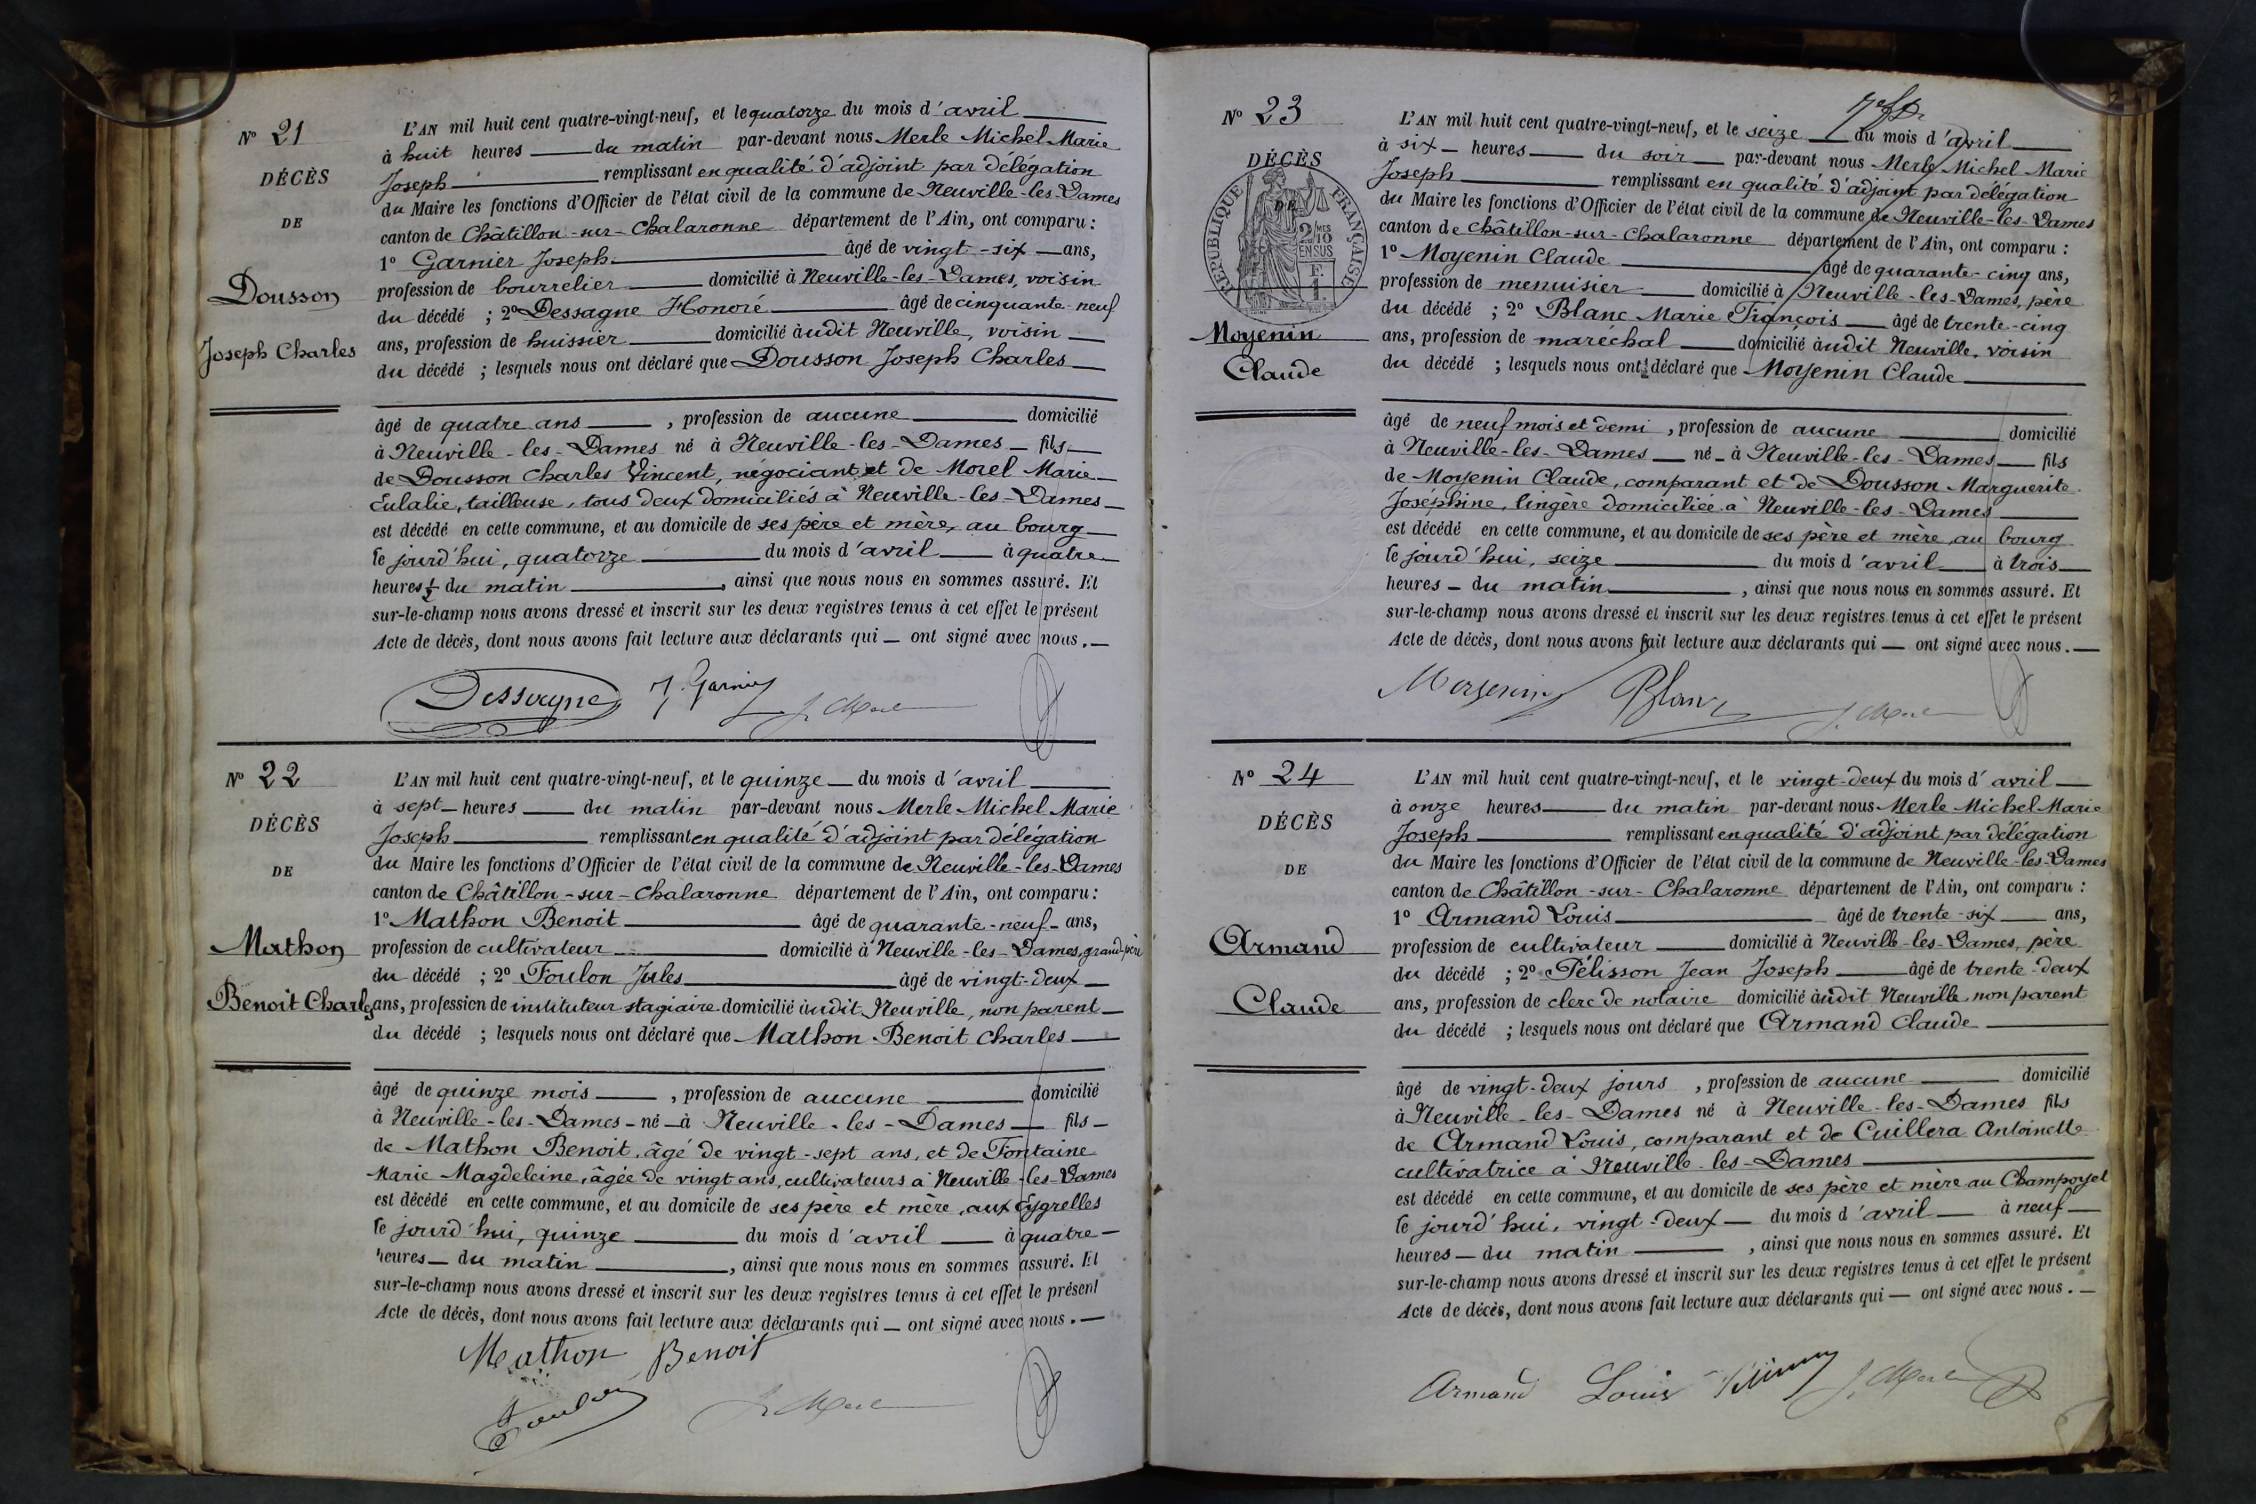 N° 21
DÉCÈS
DE
Dousson
Joseph Charles
L'AN mil huit cent quatre-vingt-neuf, et le quatorze du mois d'avril
à huit heures du matin par-devant nous Merle Michel Marie
Joseph remplissant en qualité d'adjoint par délégation
du Maire les fonctions d'Officier de l'état civil de la commune de Neuville-les-Dames
canton de Châtillon-sur-Chalaronne département de l'Ain, ont comparu :
1° Garnier Joseph âgé de vingt-six ans,
profession de bourrelier domicilié à Neuville-les-Dames, voisin
du décédé ; 2° Dessagne Honoré âgé de cinquante-neuf
ans, profession de huissier domicilié àudit Neuville, voisin
du décédé ; lesquels nous ont déclaré que Dousson Joseph Charles
âgé de quatre ans , profession de aucune domicilié
à Neuville-les-Dames né à Neuville-les-Dames fils
de Dousson Charles Vincent, négociant et de Morel Marie
Eulalie, tailleuse, tous deux domiciliés à Neuville-les-Dames
est décédé en cette commune, et au domicile de ses père et mère, au bourg
le jourd'hui, quatorze du mois d'avril à quatre
heures ½ du matin , ainsi que nous nous en sommes assuré. Et
sur-le-champ nous avons dressé et inscrit sur les deux registres tenus à cet effet le présent
Acte de décès, dont nous avons fait lecture aux déclarants qui — ont signé avec nous. —
Dessagne J. Garnier J. Merle
N° 22
DÉCÈS
DE
Mathon
Benoit Charles
L'AN mil huit cent quatre-vingt-neuf, et le quinze du mois d'avril
à sept heures du matin par-devant nous Merle Michel Marie
Joseph remplissant en qualité d'adjoint par délégation
du Maire les fonctions d'Officier de l'état civil de la commune de Neuville-les-Dames
canton de Châtillon-sur-Chalaronne département de l'Ain, ont comparu :
1° Mathon Benoit âgé de quarante-neuf ans,
profession de cultivateur domicilié à Neuville-les-Dames, grand-père
du décédé ; 2° Foulon Jules âgé de vingt-deux
ans, profession de instituteur stagiaire domicilié àudit Neuville, non parent
du décédé ; lesquels nous ont déclaré que Mathon Benoit Charles
âgé de quinze mois , profession de aucune domicilié
à Neuville-les-Dames né à Neuville-les-Dames fils
de Mathon Benoit, âgé de vingt-sept ans, et de Fontaine
Marie Magdeleine, âgée de vingt ans, cultivateurs à Neuville-les-Dames
est décédé en cette commune, et au domicile de ses père et mère, aux Eygrelles
le jourd'hui, quinze du mois d'avril à quatre
heures du matin , ainsi que nous nous en sommes assuré. Et
sur-le-champ nous avons dressé et inscrit sur les deux registres tenus à cet effet le présent
Acte de décès, dont nous avons fait lecture aux déclarants qui — ont signé avec nous. —
Mathon Benoit
Foulon J. Merle
N° 23
DÉCÈS
DE
RÉPUBLIQUE FRANÇAISE
2 MES
10
EN SUS
F.
1.
Moyenin
Claude
L'AN mil huit cent quatre-vingt-neuf, et le seize du mois d'avril
à six heures du soir par-devant nous Merle Michel Marie
Joseph remplissant en qualité d'adjoint par délégation
du Maire les fonctions d'Officier de l'état civil de la commune de Neuville-les-Dames
canton de Châtillon-sur-Chalaronne département de l'Ain, ont comparu :
1° Moyenin Claude âgé de quarante-cinq ans,
profession de menuisier domicilié à Neuville-les-Dames, père
du décédé ; 2° Blanc Marie François âgé de trente-cinq
ans, profession de maréchal domicilié àudit Neuville, voisin
du décédé ; lesquels nous ont déclaré que Moyenin Claude
âgé de neuf mois et demi , profession de aucune domicilié
à Neuville-les-Dames né à Neuville-les-Dames fils
de Moyenin Claude, comparant et de Dousson Marguerite
Joséphine, lingère domiciliée à Neuville-les-Dames
est décédé en cette commune, et au domicile de ses père et mère, au bourg
le jourd'hui, seize du mois d'avril à trois
heures du matin , ainsi que nous nous en sommes assuré. Et
sur-le-champ nous avons dressé et inscrit sur les deux registres tenus à cet effet le présent
Acte de décès, dont nous avons fait lecture aux déclarants qui — ont signé avec nous. —
Moyenin Blanc J. Merle
N° 24
DÉCÈS
DE
Armand
Claude
L'AN mil huit cent quatre-vingt-neuf, et le vingt-deux du mois d'avril
à onze heures du matin par-devant nous Merle Michel Marie
Joseph remplissant en qualité d'adjoint par délégation
du Maire les fonctions d'Officier de l'état civil de la commune de Neuville-les-Dames
canton de Châtillon-sur-Chalaronne département de l'Ain, ont comparu :
1° Armand Louis âgé de trente-six ans,
profession de cultivateur domicilié à Neuville-les-Dames, père
du décédé ; 2° Pélisson Jean Joseph âgé de trente-deux
ans, profession de clerc de notaire domicilié àudit Neuville, non parent
du décédé ; lesquels nous ont déclaré que Armand Claude
âgé de vingt-deux jours , profession de aucune domicilié
à Neuville-les-Dames né à Neuville-les-Dames fils
de Armand Louis, comparant et de Cuillera Antoinette
cultivatrice à Neuville-les-Dames
est décédé en cette commune, et au domicile de ses père et mère au Champoyet
le jourd'hui, vingt-deux du mois d'avril à neuf
heures du matin , ainsi que nous nous en sommes assuré. Et
sur-le-champ nous avons dressé et inscrit sur les deux registres tenus à cet effet le présent
Acte de décès, dont nous avons fait lecture aux déclarants qui — ont signé avec nous. —
Armand Louis J. Merle